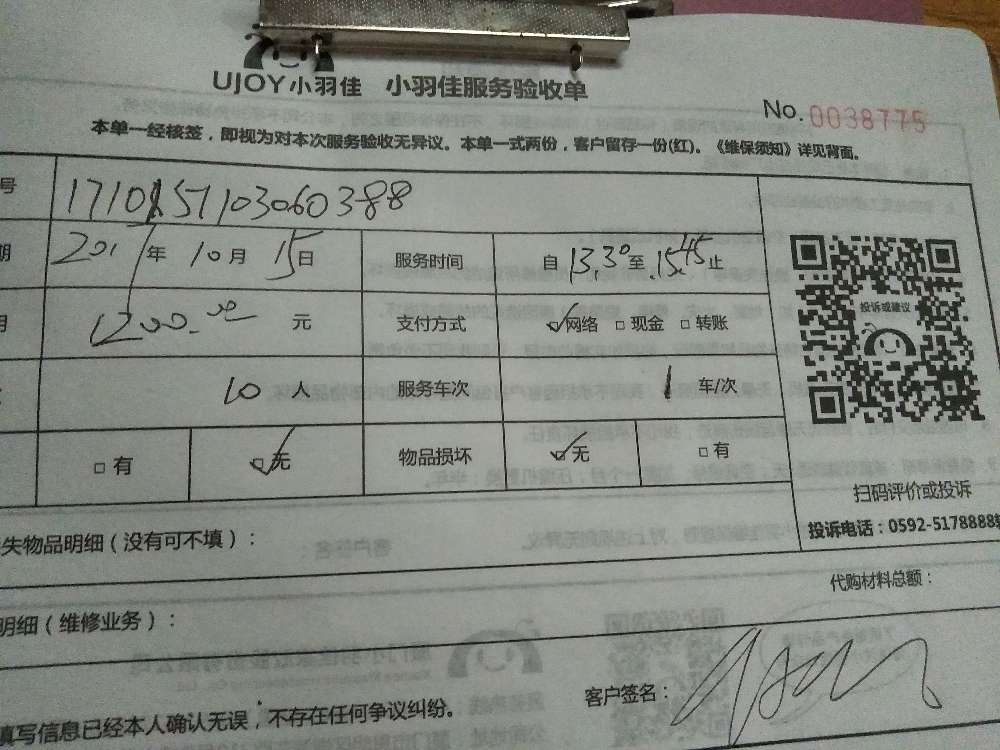 UJOY小羽佳 小羽佳服务验收单
No. 0038775
本单一经核签，即视为对本次服务验收无异议。本单一式两份，客户留存一份(红)。《维保须知》详见背面。
号 1710157103060388
期 2017年10月15日 服务时间 自13.30至15.45止
用 1200.00元 支付方式 ☑网络 □现金 □转账
10人 服务车次 1车/次
□有 ☑无 物品损坏 ☑无 □有
投诉或建议
扫码评价或投诉
投诉电话：0592-5178888转
失物品明细（没有可不填）：
代购材料总额：
明细（维修业务）：
填写信息已经本人确认无误，不存在任何争议纠纷。 客户签名：